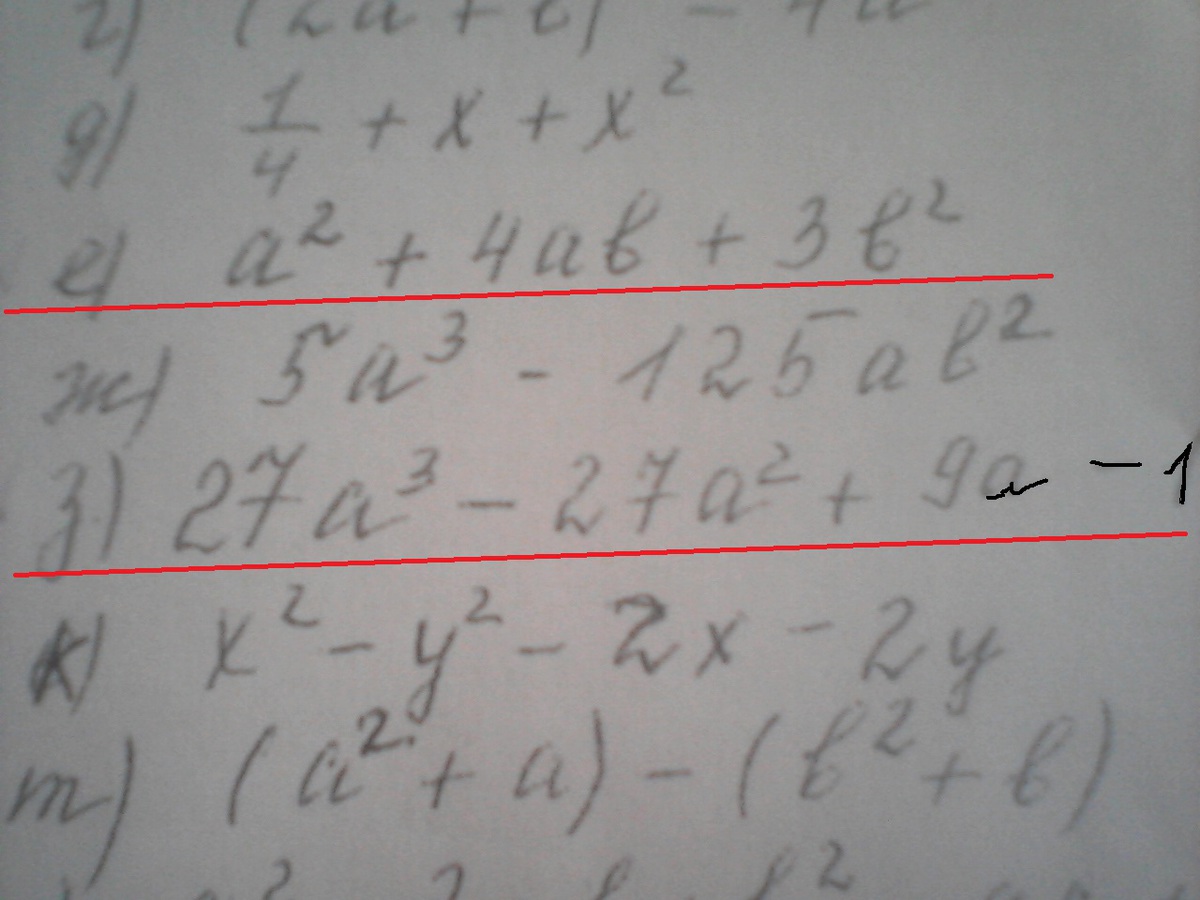 г) (2a + b) - 4a
д) 1/4 + x + x²
е) a² + 4ab + 3b²
ж) 5a³ - 125ab²
з) 27a³ - 27a² + 9a - 1
к) x² - y² - 2x - 2y
т) (a² + a) - (b² + b)